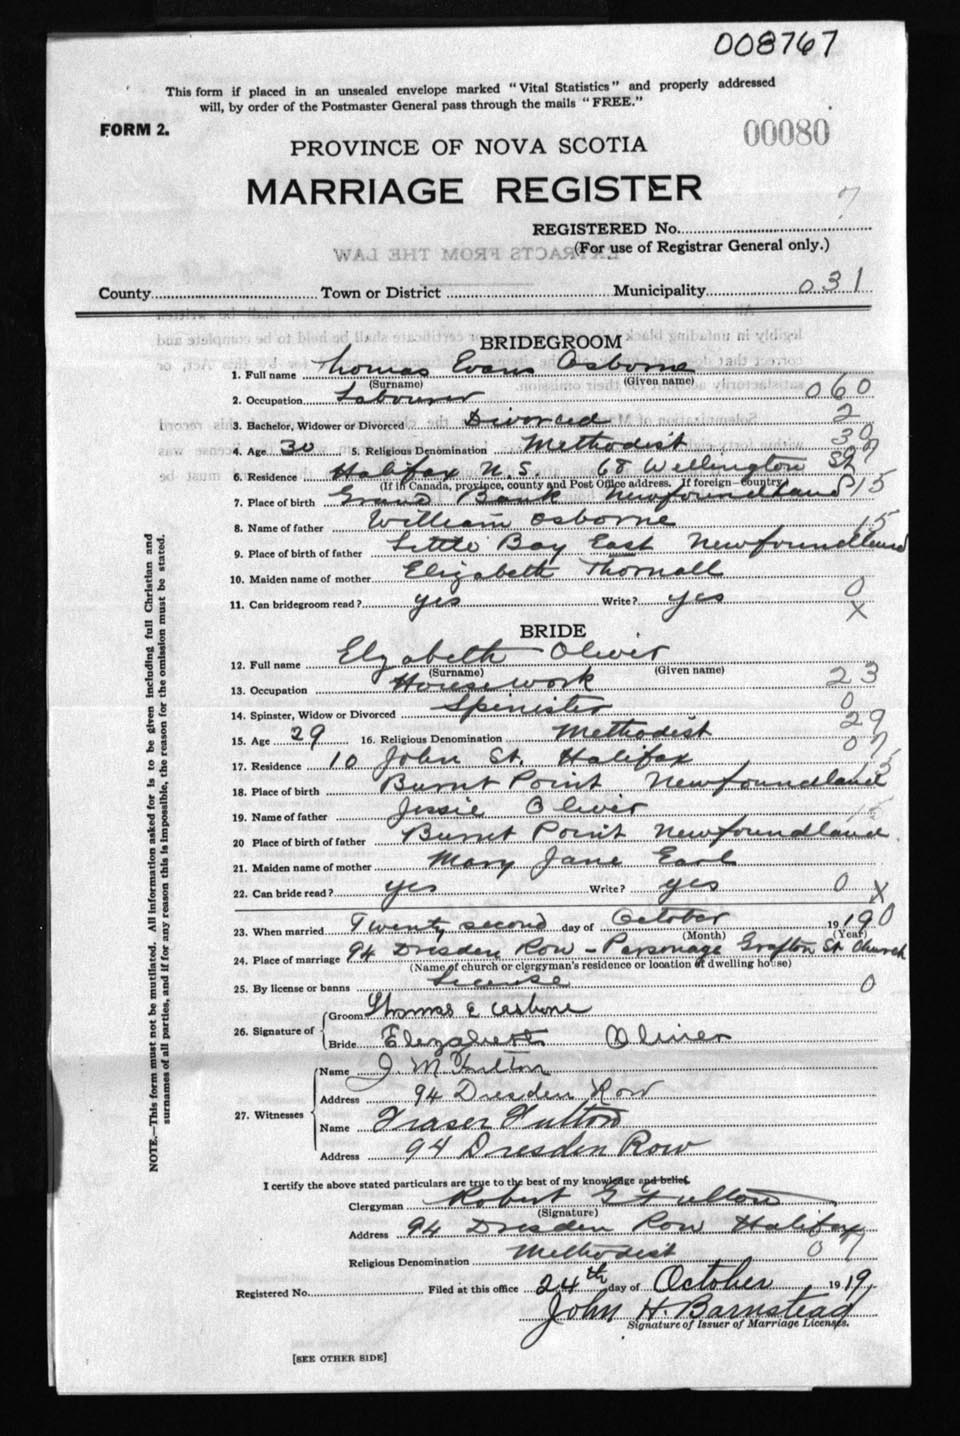 008767
This form if placed in an unsealed envelope marked "Vital Statistics" and properly addressed
will, by order of the Postmaster General pass through the mails "FREE."
FORM 2.
00080
PROVINCE OF NOVA SCOTIA
MARRIAGE REGISTER
7
REGISTERED No.
(For use of Registrar General only.)
EXTRACTS FROM THE LAW
County Town or District Municipality 031
BRIDEGROOM
1. Full name Thomas Evans Osborne
(Surname) (Given name)
2. Occupation Labourer 060
3. Bachelor, Widower or Divorced Divorced 2
4. Age 30 5. Religious Denomination Methodist 30
6. Residence Halifax N.S. 68 Wellington St
(If in Canada, province, county and Post Office address. If foreign—country)
7. Place of birth Grand Bank Newfoundland 15
8. Name of father William Osborne
9. Place of birth of father Little Bay East Newfoundland 15
10. Maiden name of mother Elizabeth Thornall
11. Can bridegroom read? yes Write? yes 0
X
BRIDE
12. Full name Elizabeth Oliver
(Surname) (Given name)
13. Occupation Housework 23
14. Spinster, Widow or Divorced Spinister 0
15. Age 29 16. Religious Denomination Methodist 29
17. Residence 10 John St. Halifax 07
18. Place of birth Burnt Point Newfoundland 15
19. Name of father Jessie Oliver
20 Place of birth of father Burnt Point Newfoundland 15
21. Maiden name of mother Mary Jane Earl
22. Can bride read? yes Write? yes 0 X
23. When married Twenty second day of October 1919 0
(Month) (Year)
24. Place of marriage 94 Dresden Row - Parsonage Grafton St Church
(Name of church or clergyman's residence or location of dwelling house)
25. By license or banns License 0
26. Signature of
Groom Thomas E Osborne
Bride Elizabeth Oliver
27. Witnesses
Name J. M Fulton
Address 94 Dresden Row
Name Fraser Fulton
Address 94 Dresden Row
I certify the above stated particulars are true to the best of my knowledge and belief.
Clergyman Robert G Fulton
(Signature)
Address 94 Dresden Row Halifax
Religious Denomination Methodist 07
Registered No. Filed at this office 24th day of October 1919
John H. Barnstead
Signature of Issuer of Marriage Licenses.
[SEE OTHER SIDE]
NOTE.—This form must not be mutilated. All information asked for is to be given including full Christian and
surnames of all parties, and if for any reason this is impossible, the reason for the omission must be stated.